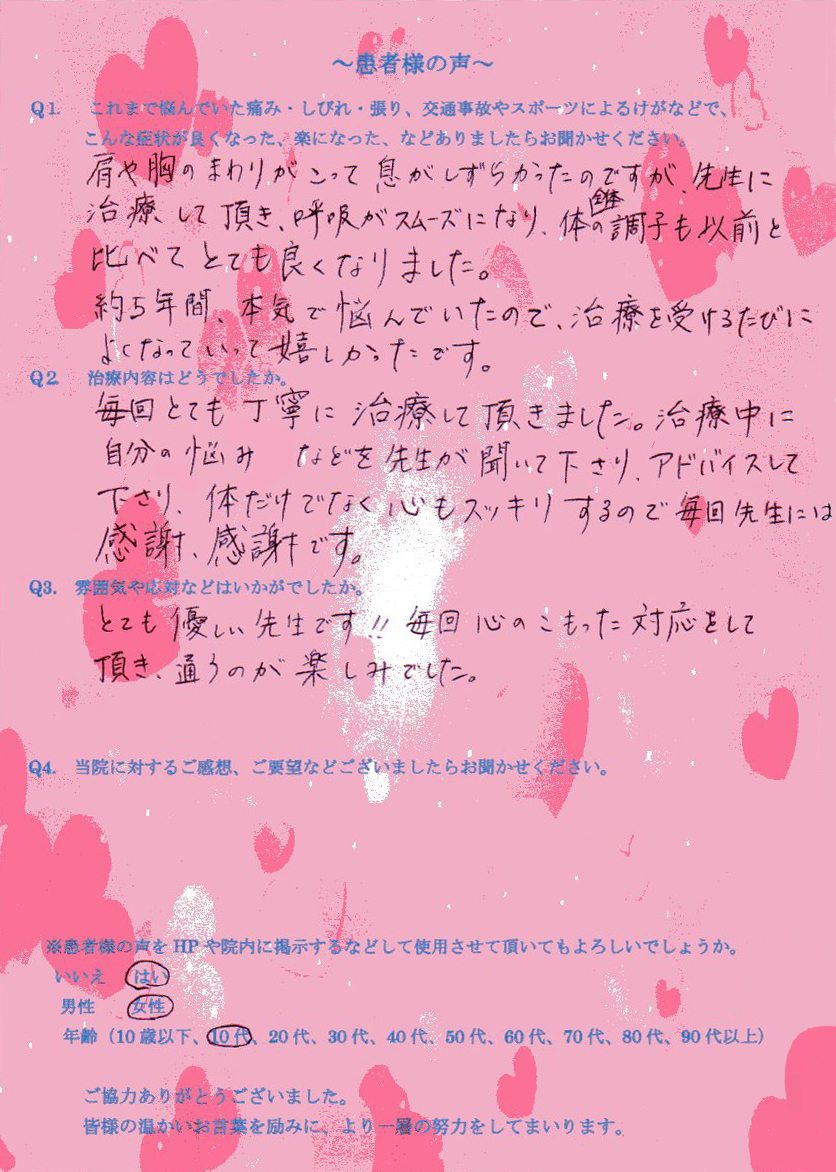 ～患者様の声～
Q1. これまで悩んでいた痛み・しびれ・張り、交通事故やスポーツによるけがなどで、
こんな症状が良くなった、楽になった、などありましたらお聞かせください。
肩や胸のまわりがこって息がしずらかったのですが、先生に
治療して頂き、呼吸がスムーズになり、体全体の調子も以前と
比べてとても良くなりました。
約5年間、本気で悩んでいたので、治療を受けるたびに
よくなっていって嬉しかったです。
Q2. 治療内容はどうでしたか。
毎回とても丁寧に治療して頂きました。治療中に
自分の悩み などを先生が聞いて下さり、アドバイスして
下さり、体だけでなく心もスッキリするので毎回先生には
感謝、感謝です。
Q3. 雰囲気や応対などはいかがでしたか。
とても優しい先生です!! 毎回心のこもった対応をして
頂き、通うのが楽しみでした。
Q4. 当院に対するご感想、ご要望などございましたらお聞かせください。
※患者様の声をHPや院内に掲示するなどして使用させて頂いてもよろしいでしょうか。
いいえ はい
男性 女性
年齢（10歳以下、10代、20代、30代、40代、50代、60代、70代、80代、90代以上）
ご協力ありがとうございました。
皆様の温かいお言葉を励みに、より一層の努力をしてまいります。